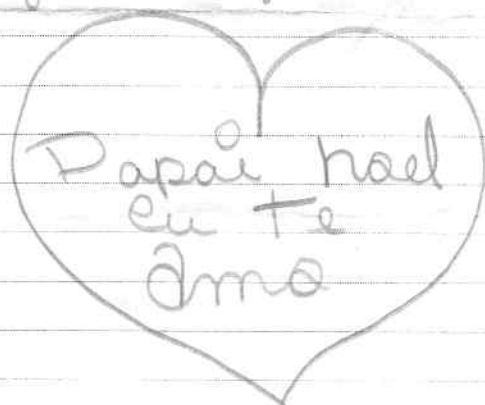 Papai noel
eu te
amo